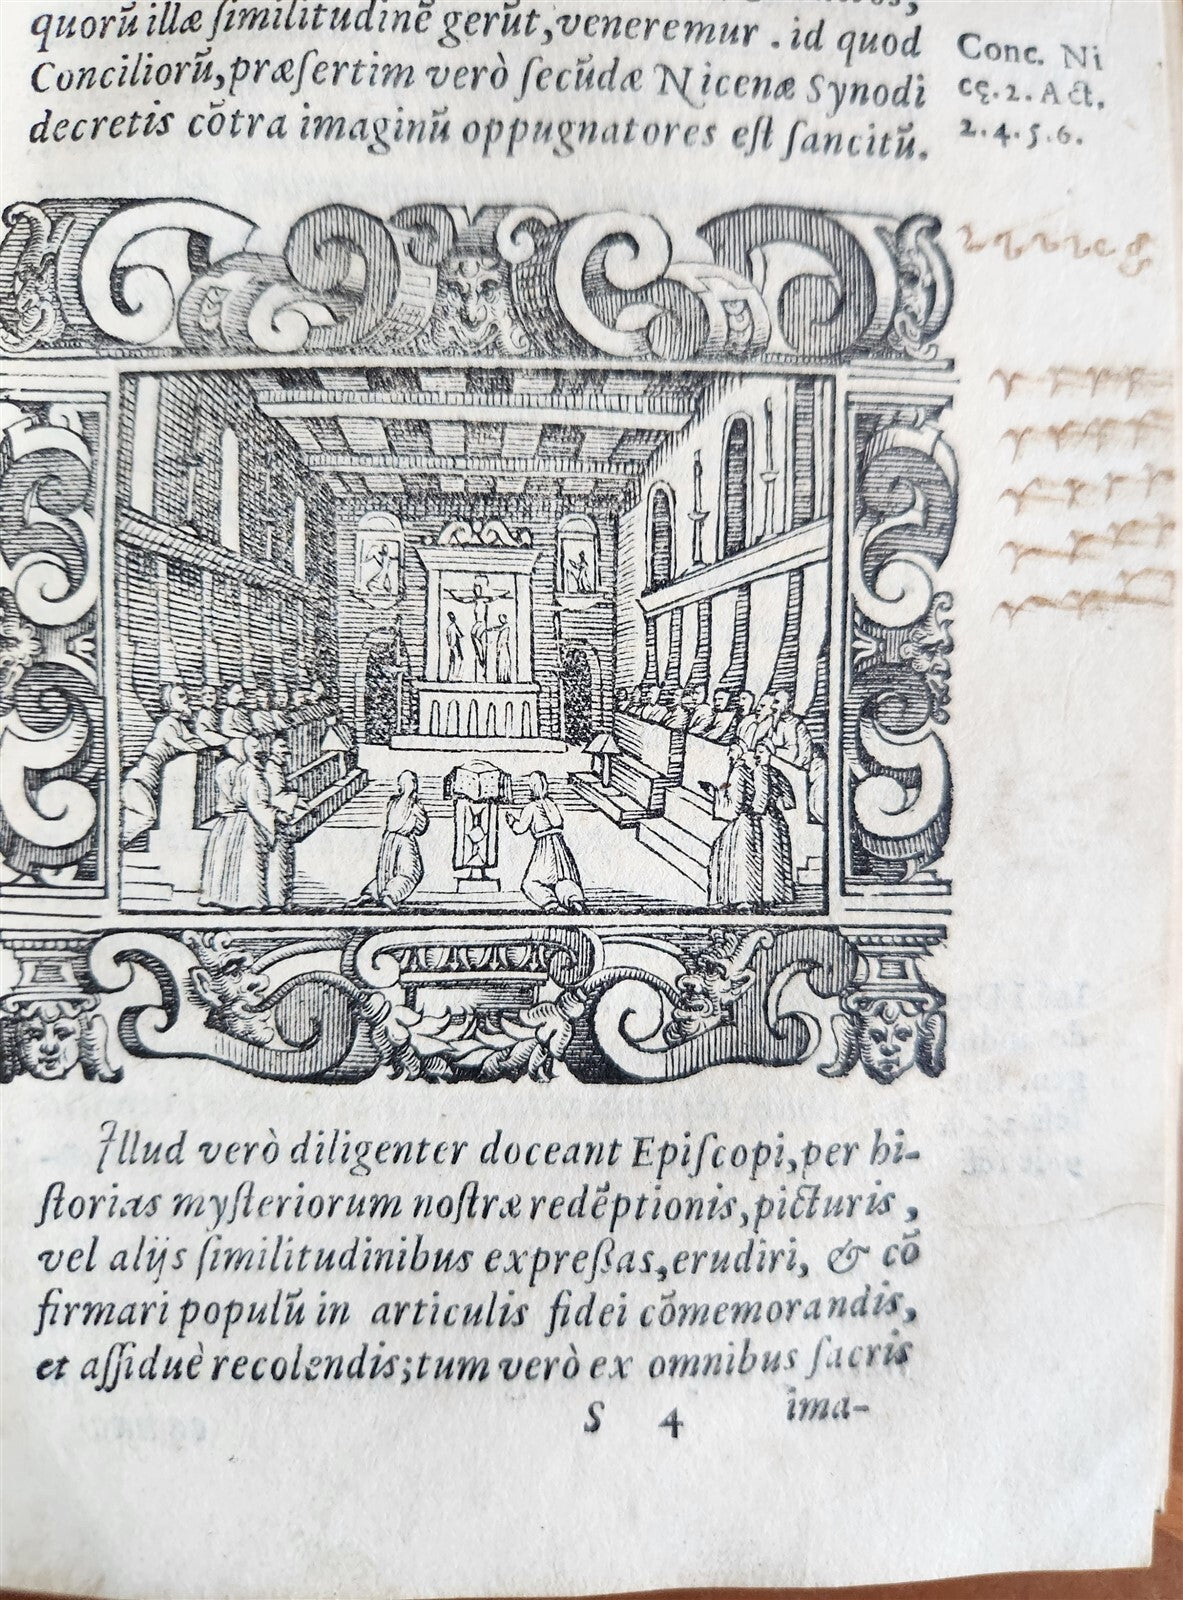 quorũ illæ ſimilitudinẽ gerũt, veneremur. id quod
Conciliorũ, præſertim verò ſecũdæ Nicenæ Synodi
decretis cõtra imaginũ oppugnatores eſt ſancitũ.
Conc. Ni
cę. 2. Act.
2. 4. 5. 6.
Illud verò diligenter doceant Epiſcopi, per hi-
ſtorias myſteriorum noſtræ redẽptionis, picturis,
vel alijs ſimilitudinibus expreßas, erudiri, & cõ
firmari populũ in articulis fidei cõmemorandis,
et aſſiduè recolendis; tum verò ex omnibus ſacris
S 4 ima-